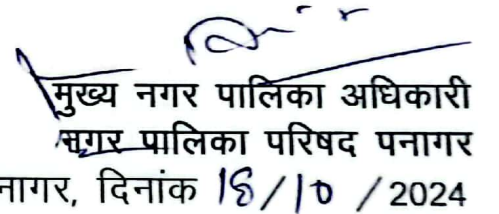 मुख्य नगर पालिका अधिकारी
नगर पालिका परिषद पनागर
नागर, दिनांक 18/10 /2024